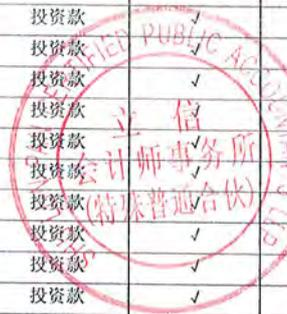 投资款 √
投资款 √
投资款 √
投资款 √
投资款 √
投资款 √
投资款 √
投资款 √
投资款 √
投资款 √
CERTIFIED PUBLIC ACCOUNTANTS LLP
立信
会计师事务所
(特殊普通合伙)